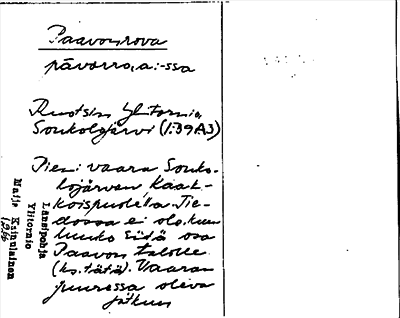 Paavonrova
pävorra, a: -ssa
Ruotsin Ylitornio,
Soukolojärvi (1:39A3)
Pieni vaara Souko-
lojärven kaak-
koispuolella. Tie-
dossa ei ole, kuu-
luuko siitä osa
Paavon talolle
(ks. tätä). Vaaran
juuressa oleva
jätkun
Länsipohja
Ylitornio
Maija Kainulainen
1966